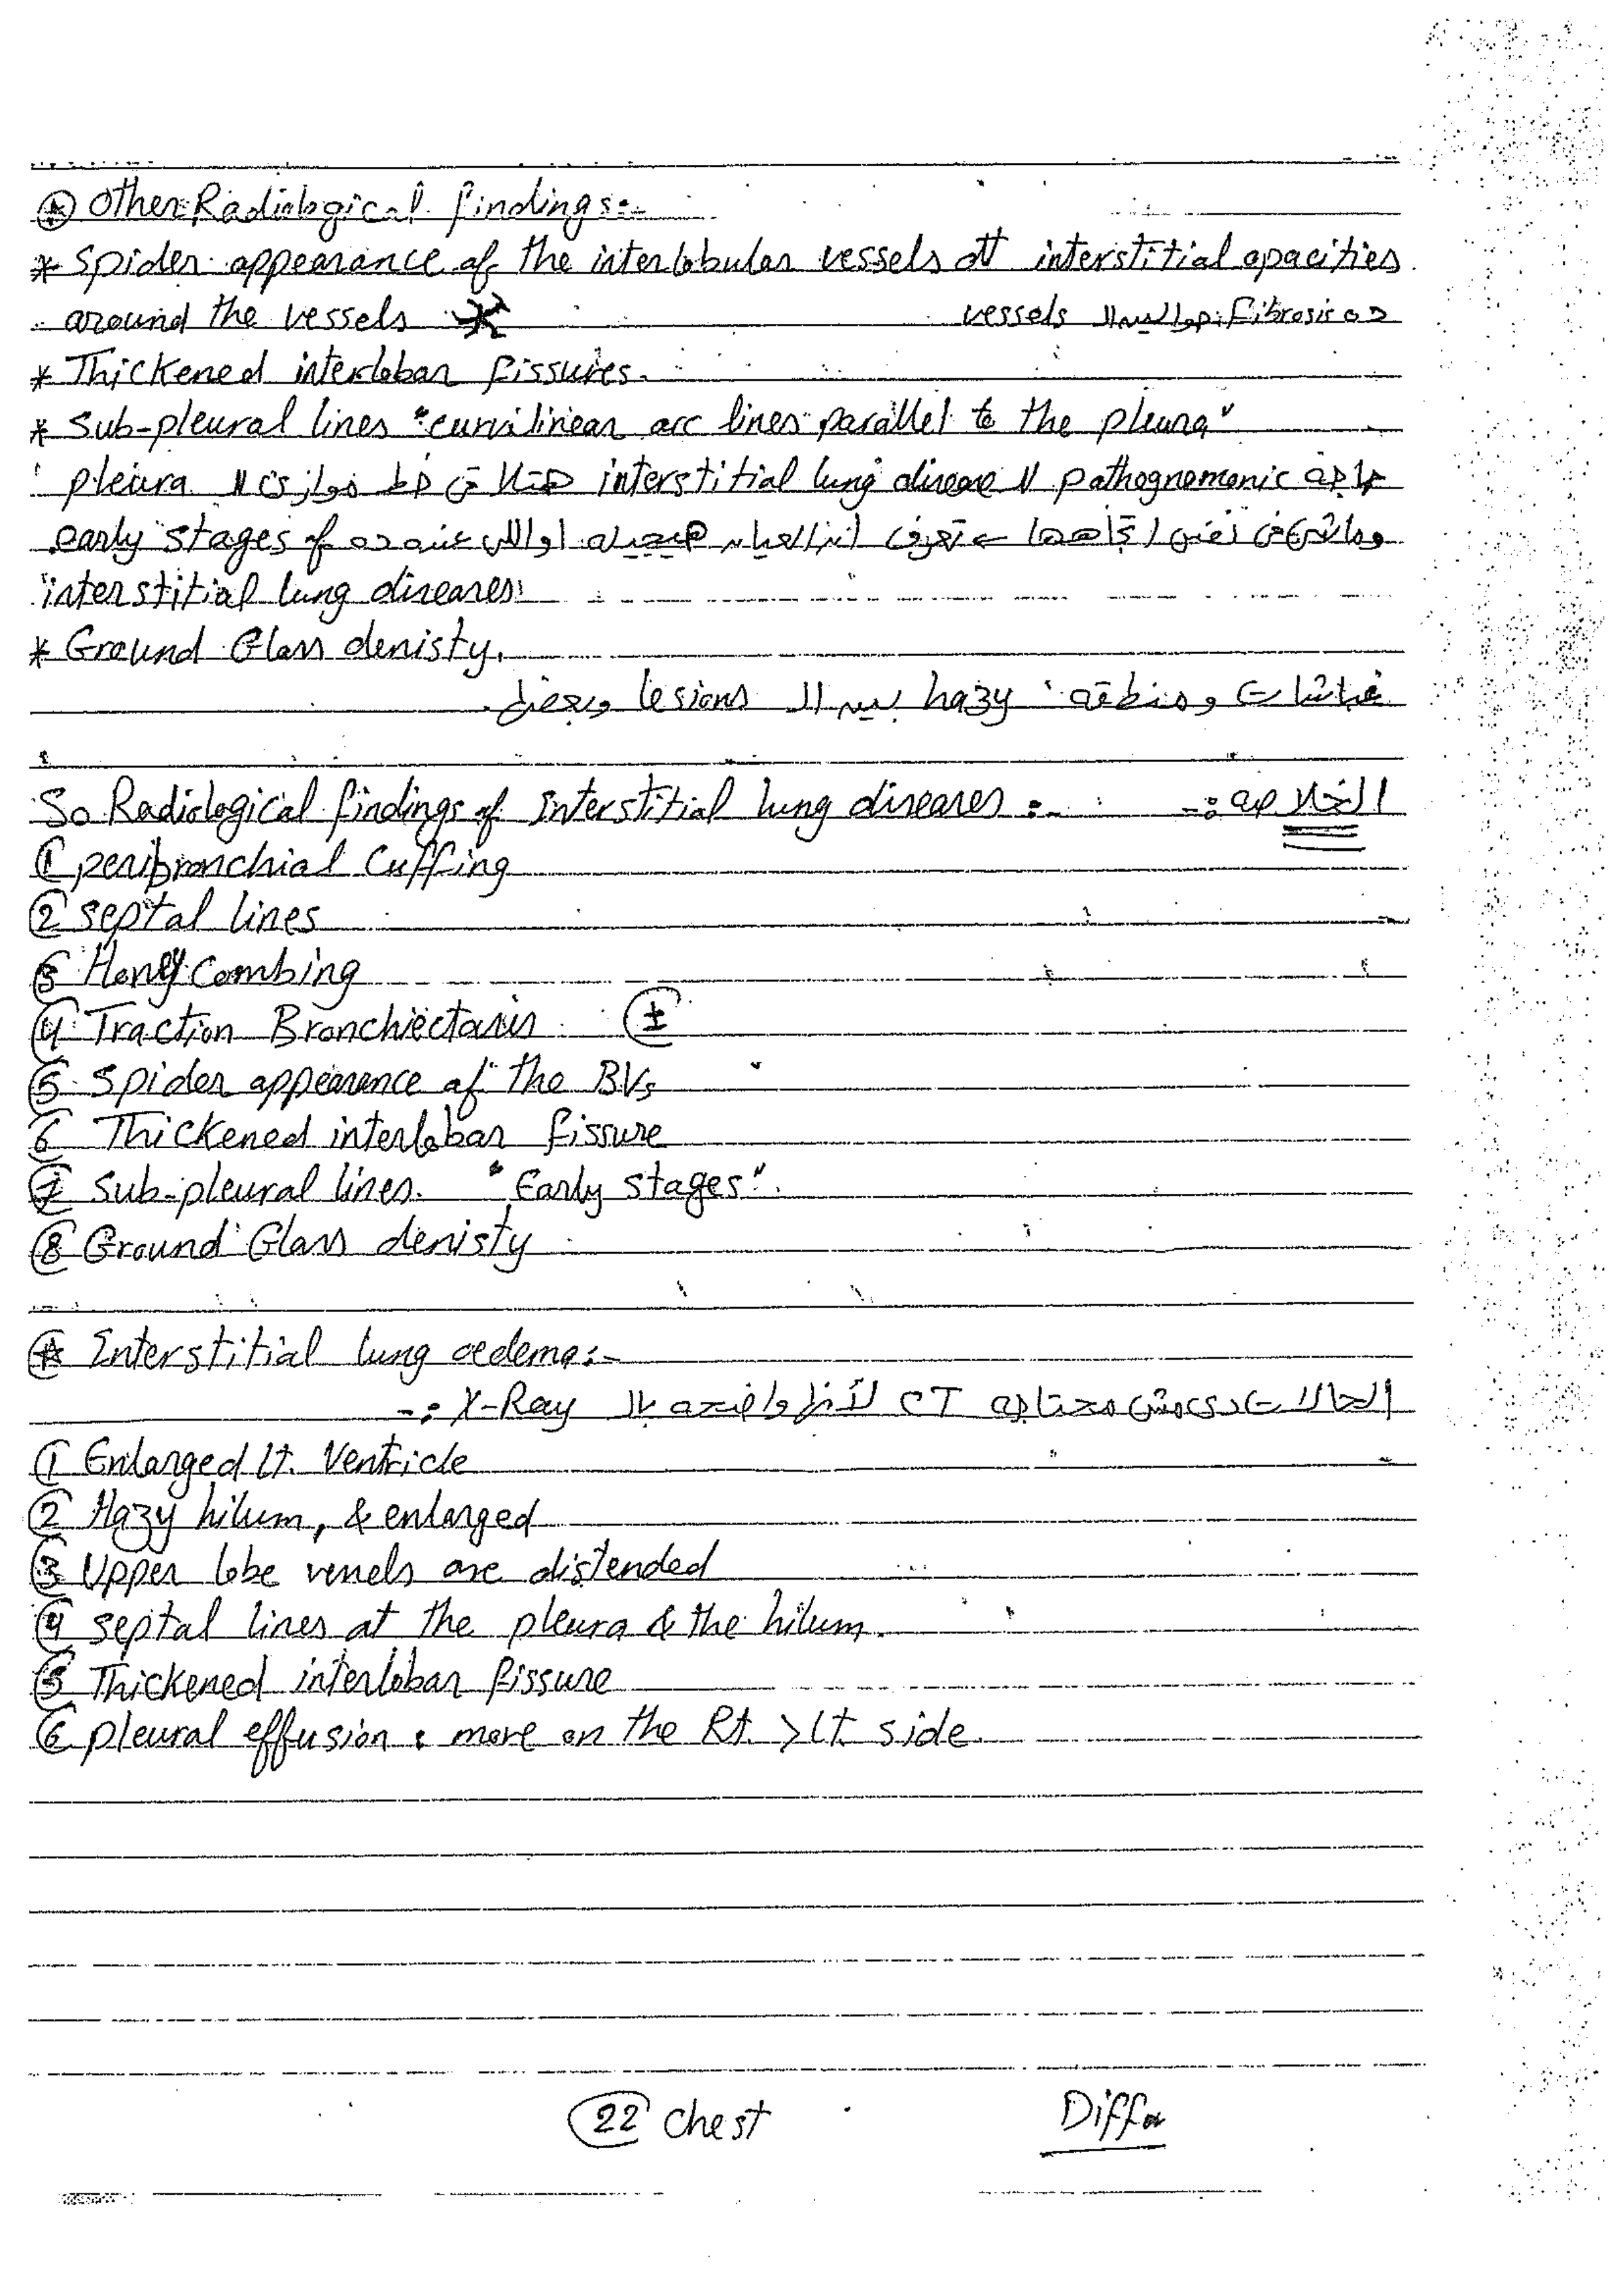 Other Radiological findings:-
* Spider appearance of the interlobular vessels dt interstitial opacities
around the vessels
ده fibrosis حوالين الـ vessels
* Thickened interlobar fissures.
* Sub-pleural lines "curvilinear arc lines parallel to the pleura"
حاجة pathognomonic لل interstitial lung disease هتلاقي خط موازي لل pleura
early stages of ده عنده العيان ان تعرف ←
interstitial lung diseases
* Ground Glass denisty.
غباشات ومنطقة hazy بين الـ lesions وبعض.
So Radiological findings of Interstitial lung diseases :- الخلاصة :-
① peribronchial Cuffing
② septal lines
③ Honey Combing
④ Traction Bronchiectasis ±
⑤ Spider appearence of the BVs
⑥ Thickened interlobar fissure
⑦ Sub-pleural lines. "Early stages".
⑧ Ground Glass denisty
Interstitial lung oedema:-
الحالات دي مش محتاجة CT لأنها واضحة بالـ X-Ray :-
① Enlarged Lt. Ventricle
② Hazy hilum, & enlarged
③ Upper lobe vessels are distended
④ septal lines at the pleura & the hilum.
⑤ Thickened interlobar fissure
⑥ pleural effusion : more on the Rt. > Lt. side.
22 Chest